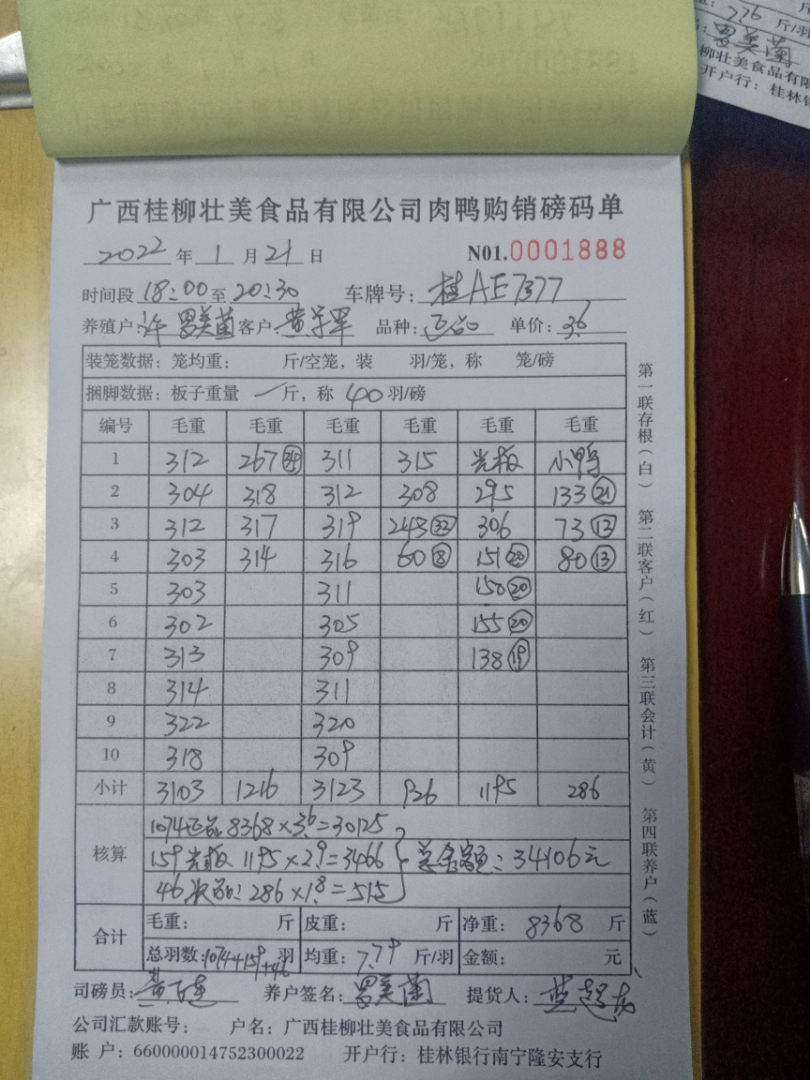 776 斤/羽
罗美菌
柳壮美食品有限
开户行：桂林银
广西桂柳壮美食品有限公司肉鸭购销磅码单
2022 年 1 月 21 日 N01.0001888
时间段 18:00 至 20:30 车牌号：桂AE7377
养殖户：许 罗美菌 客户：黄 品种：正品 单价：3.6
装笼数据：笼均重： 斤/空笼，装 羽/笼，称 笼/磅
捆脚数据：板子重量 一 斤，称 40 羽/磅
编号 毛重 毛重 毛重 毛重 毛重 毛重
1 312 267(34) 311 315 光板 小鸭
2 304 318 312 308 295 133(21)
3 312 317 319 243(32) 306 73(12)
4 303 314 316 60(8) 151(20) 80(13)
5 303 311 150(20)
6 302 305 155(20)
7 313 309 138(19)
8 314 311
9 322 320
10 318 309
小计 3103 1216 3123 926 1195 286
核算
1074正品 8368×3.6=30125
159光板 1195×2.9=3466 } 总金额：34106元
46次品：286×1.8=515
合计
毛重： 斤 皮重： 斤 净重： 8368 斤
总羽数：1074+159+46 羽 均重：7.79 斤/羽 金额： 元
司磅员：黄 养户签名：罗美菌 提货人：
公司汇款账号： 户名：广西桂柳壮美食品有限公司
账 户：660000014752300022 开户行：桂林银行南宁隆安支行
第一联存根（白） 第二联客户（红） 第三联会计（黄） 第四联养户（蓝）